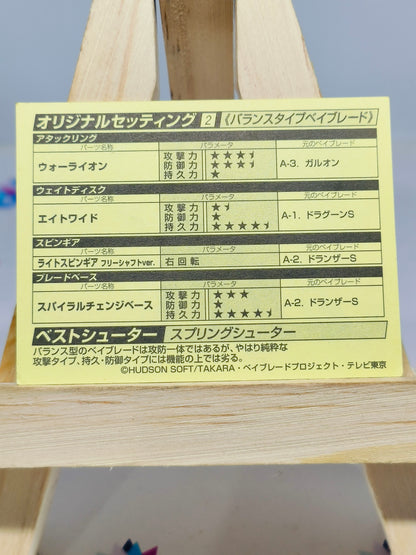 オリジナルセッティング 2 《バランスタイプベイブレード》
アタックリング
パーツ名称 パラメータ 元のベイブレード
ウォーライオン 攻撃力 ★★★⯨ A-3. ガルオン
防御力 ★★★⯨
持久力 ★
ウェイトディスク
パーツ名称 パラメータ 元のベイブレード
エイトワイド 攻撃力 ★⯨ A-1. ドラグーンS
防御力 ★
持久力 ★★★★⯨
スピンギア
パーツ名称 パラメータ 元のベイブレード
ライトスピンギア フリーシャフトver. 右回転 A-2. ドランザーS
ブレードベース
パーツ名称 パラメータ 元のベイブレード
スパイラルチェンジベース 攻撃力 ★★★ A-2. ドランザーS
防御力 ★
持久力 ★★★★⯨
ベストシューター スプリングシューター
バランス型のベイブレードは攻防一体ではあるが、やはり純粋な
攻撃タイプ、持久・防御タイプには機能の上では劣る。
©HUDSON SOFT/TAKARA・ベイブレードプロジェクト・テレビ東京